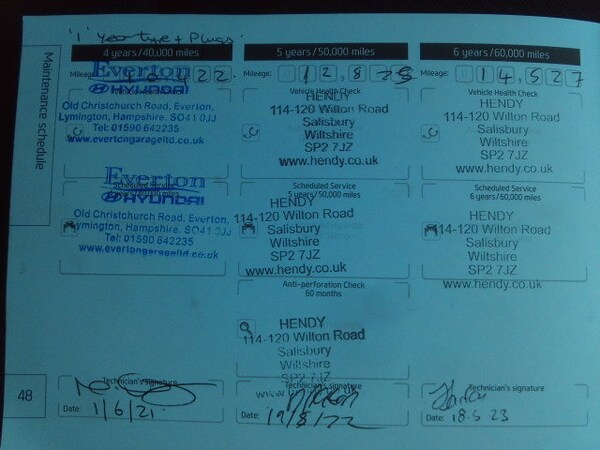 4 years/40,000 miles
Mileage:
Everton
HYUNDAI
Old Christchurch Road, Everton,
Lymington, Hampshire. SO41 0JJ
Tel: 01590 642235
www.evertongarageltd.co.uk
Everton
HYUNDAI
Scheduled Service
Old Christchurch Road, Everton,
Lymington, Hampshire. SO41 0JJ
Tel: 01590 642235
www.evertongarageltd.co.uk
Technician's signature
Date: 1/6/21
5 years/50,000 miles
Mileage: 12,825
Vehicle Health Check
HENDY
114-120 Wilton Road
Salisbury
Wiltshire
SP2 7JZ
www.hendy.co.uk
Scheduled Service
5 years/50,000 miles
HENDY
114-120 Wilton Road
Salisbury
Wiltshire
SP2 7JZ
www.hendy.co.uk
Anti-perforation Check
60 months
HENDY
114-120 Wilton Road
Salisbury
Wiltshire
SP2 7JZ
Technician's signature
Date: 19/8/22
6 years/60,000 miles
Mileage: 14,527
Vehicle Health Check
HENDY
114-120 Wilton Road
Salisbury
Wiltshire
SP2 7JZ
www.hendy.co.uk
Scheduled Service
6 years/60,000 miles
HENDY
114-120 Wilton Road
Salisbury
Wiltshire
SP2 7JZ
www.hendy.co.uk
Technician's signature
Date: 18.5 23
Maintenance schedule
48